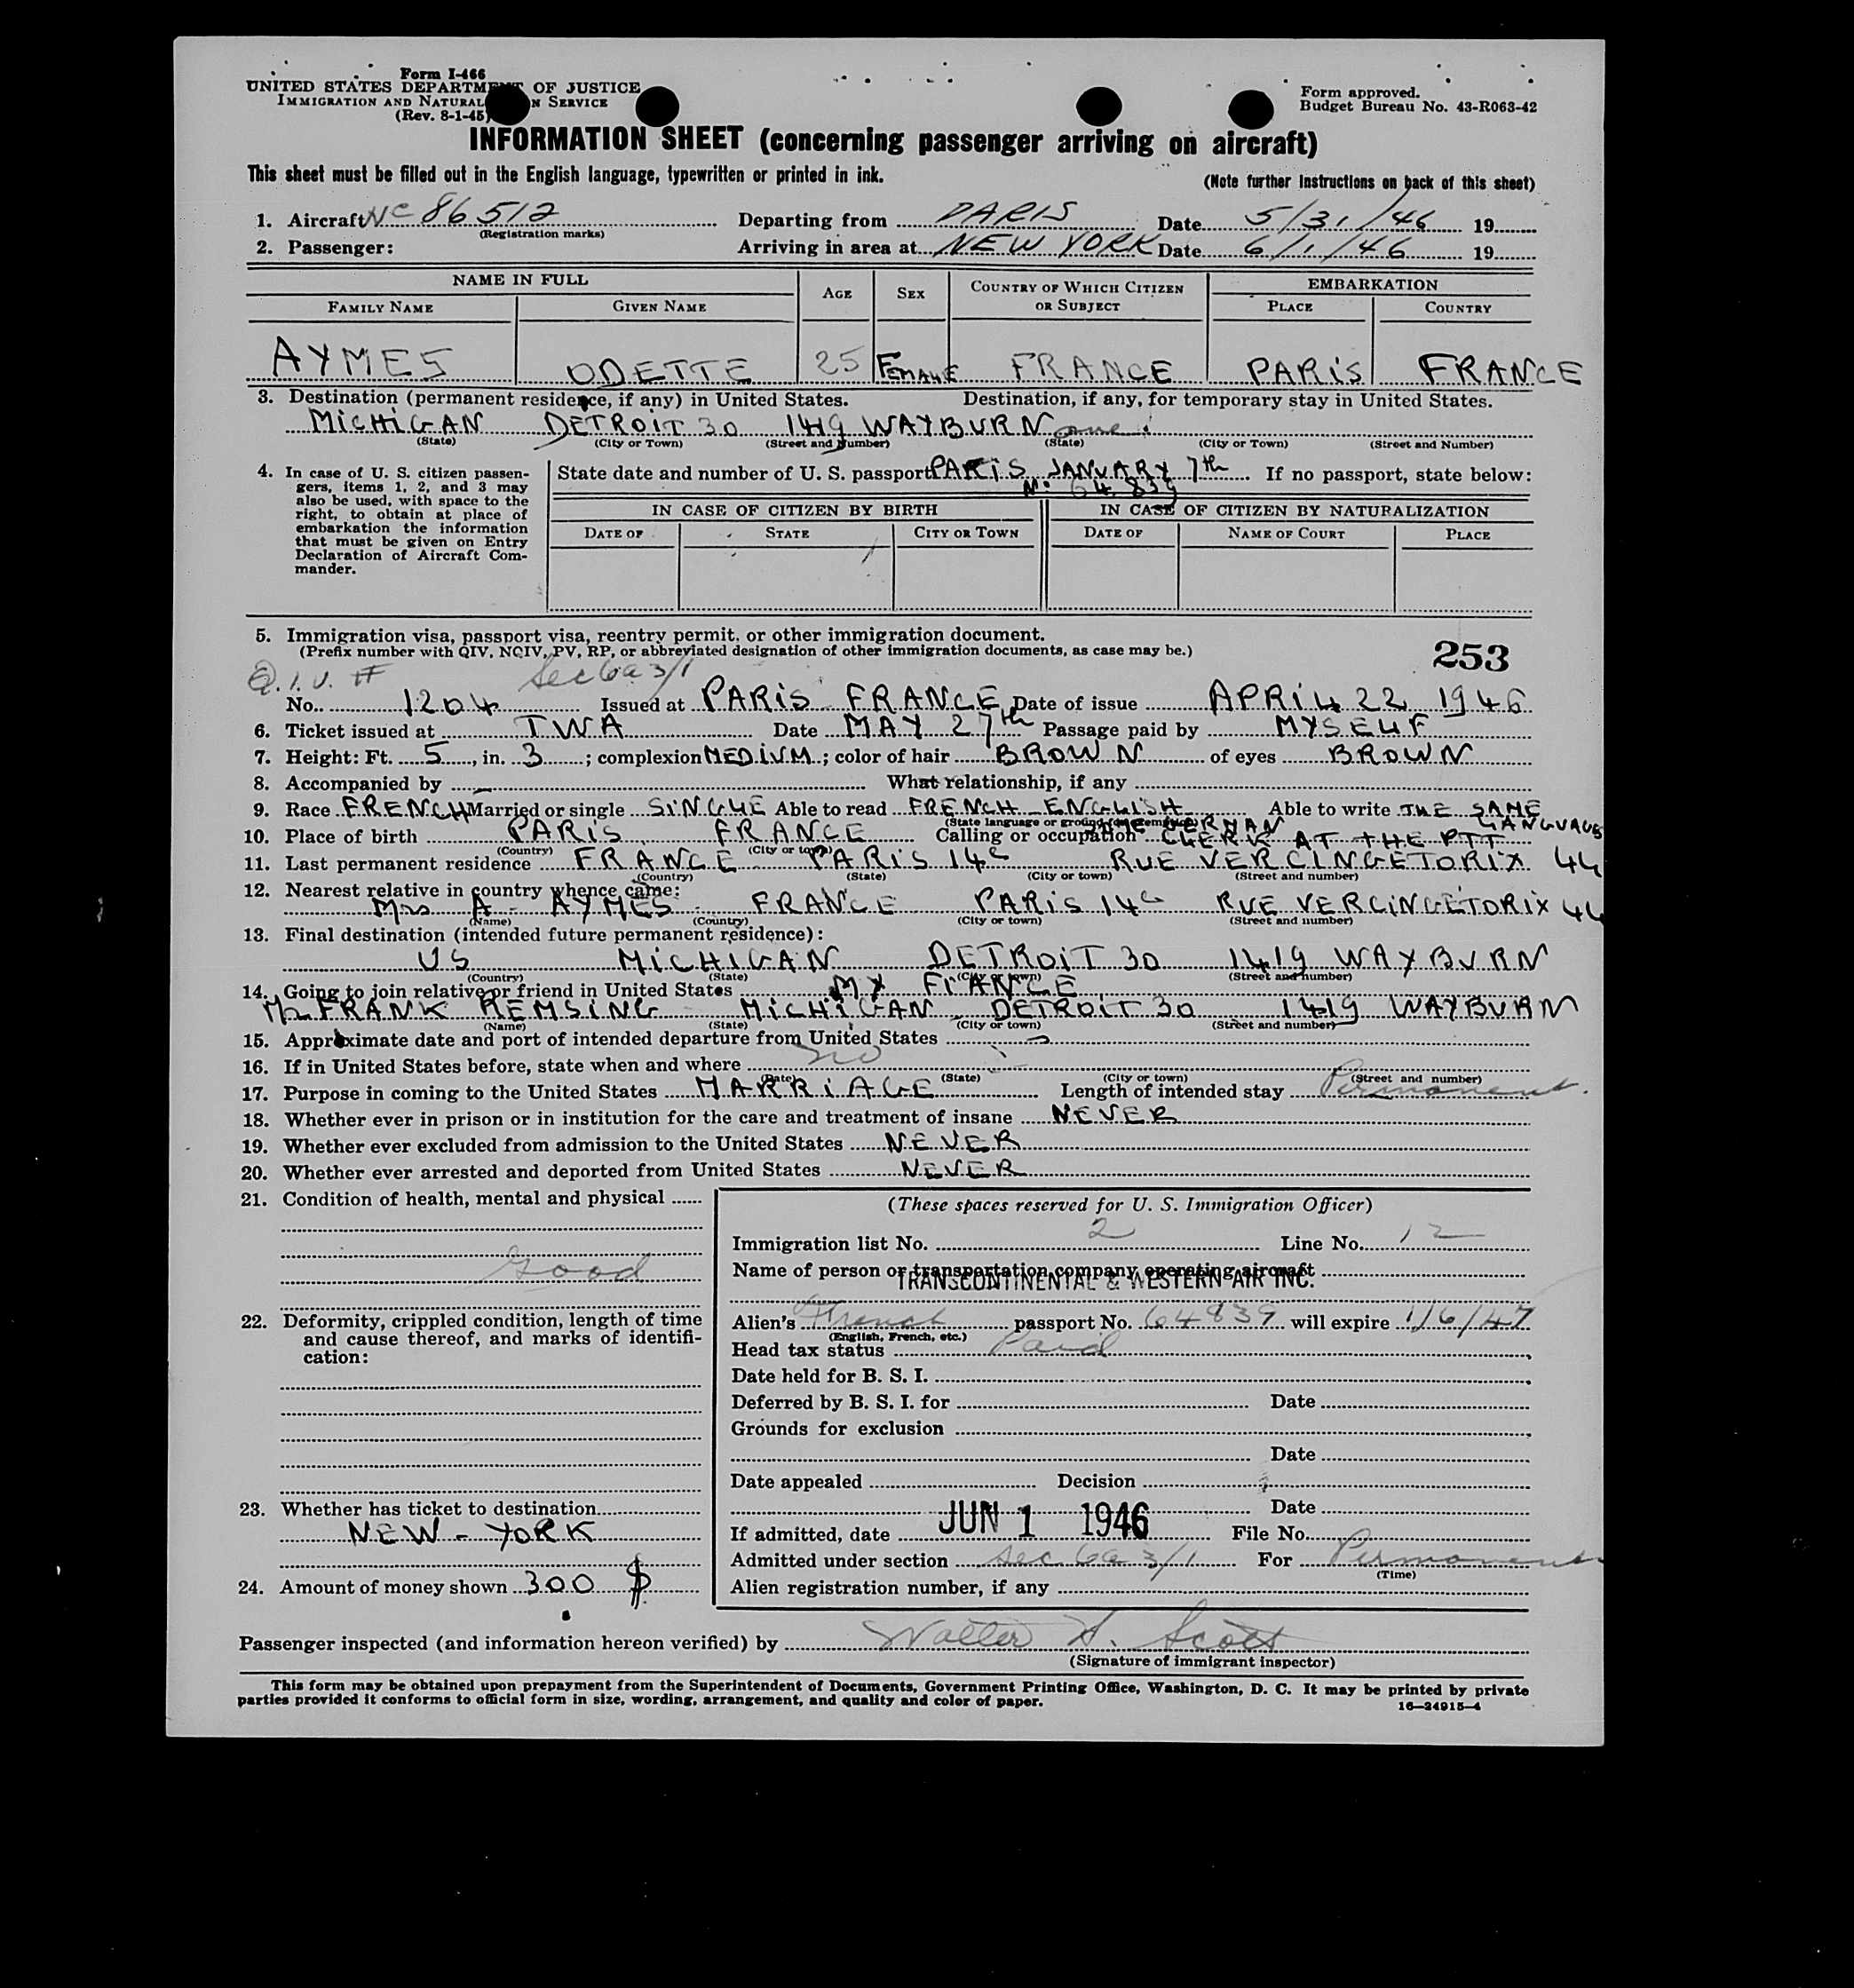 Form I-466
UNITED STATES DEPARTMENT OF JUSTICE
IMMIGRATION AND NATURAL N SERVICE
(Rev. 8-1-45)
Form approved.
Budget Bureau No. 43-R063-42
INFORMATION SHEET (concerning passenger arriving on aircraft)
This sheet must be filled out in the English language, typewritten or printed in ink.
(Note further instructions on back of this sheet)
1. Aircraft NC 86512 Departing from PARIS Date 5/31/46 19
(Registration marks)
2. Passenger: Arriving in area at NEW YORK Date 6/1/46 19
NAME IN FULL AGE SEX COUNTRY OF WHICH CITIZEN OR SUBJECT EMBARKATION
FAMILY NAME GIVEN NAME PLACE COUNTRY
AYMES ODETTE 25 FEMALE FRANCE PARIS FRANCE
3. Destination (permanent residence, if any) in United States. Destination, if any, for temporary stay in United States.
MICHIGAN DETROIT 30 1419 WAYBURN
(State) (City or Town) (Street and Number) (State) (City or Town) (Street and Number)
4. In case of U. S. citizen passen-
gers, items 1, 2, and 3 may
also be used, with space to the
right, to obtain at place of
embarkation the information
that must be given on Entry
Declaration of Aircraft Com-
mander.
State date and number of U. S. passport PARIS JANUARY 7th If no passport, state below:
No 64 839
IN CASE OF CITIZEN BY BIRTH IN CASE OF CITIZEN BY NATURALIZATION
DATE OF STATE CITY OR TOWN DATE OF NAME OF COURT PLACE
5. Immigration visa, passport visa, reentry permit, or other immigration document.
(Prefix number with QIV, NQIV, PV, RP, or abbreviated designation of other immigration documents, as case may be.)
253
Q.I.V. # Sec 6a 3/1
No. 1204 Issued at PARIS FRANCE Date of issue APRIL 22 1946
6. Ticket issued at TWA Date MAY 27th Passage paid by MYSELF
7. Height: Ft. 5, in. 3; complexion MEDIUM; color of hair BROWN of eyes BROWN
8. Accompanied by – What relationship, if any
9. Race FRENCH Married or single SINGLE Able to read FRENCH - ENGLISH Able to write THE SAME
(State language or ground for exemption) GERMAN LANGUAGE
10. Place of birth PARIS FRANCE Calling or occupation CLERK AT THE PTT
(Country) (City or town)
11. Last permanent residence FRANCE PARIS 14e RUE VERCINGETORIX 44
(Country) (State) (City or town) (Street and number)
12. Nearest relative in country whence came:
Mrs A - AYMES - FRANCE PARIS 14e RUE VERCINGETORIX 44
(Name) (Country) (City or town) (Street and number)
13. Final destination (intended future permanent residence):
US MICHIGAN DETROIT 30 1419 WAYBURN
(Country) (State) (City or town) (Street and number)
14. Going to join relative or friend in United States MY FIANCE
Mr FRANK REMSING - MICHIGAN DETROIT 30 1419 WAYBURN
(Name) (State) (City or town) (Street and number)
15. Approximate date and port of intended departure from United States –
16. If in United States before, state when and where no
(Date) (State) (City or town) (Street and number)
17. Purpose in coming to the United States MARRIAGE Length of intended stay Permanent.
18. Whether ever in prison or in institution for the care and treatment of insane NEVER
19. Whether ever excluded from admission to the United States NEVER
20. Whether ever arrested and deported from United States NEVER
21. Condition of health, mental and physical
Good
22. Deformity, crippled condition, length of time
and cause thereof, and marks of identifi-
cation:
23. Whether has ticket to destination
NEW-YORK
24. Amount of money shown 300 $
(These spaces reserved for U. S. Immigration Officer)
Immigration list No. 2 Line No. 12
Name of person or transportation company operating aircraft
TRANSCONTINENTAL & WESTERN AIR INC.
Alien's French passport No. 64839 will expire 1/6/47
(English, French, etc.)
Head tax status Paid
Date held for B. S. I.
Deferred by B. S. I. for Date
Grounds for exclusion
Date
Date appealed Decision
Date
If admitted, date JUN 1 1946 File No.
Admitted under section Sec 6a 3/1 For Permanent
(Time)
Alien registration number, if any
Passenger inspected (and information hereon verified) by Walter S. Scott
(Signature of immigrant inspector)
This form may be obtained upon prepayment from the Superintendent of Documents, Government Printing Office, Washington, D. C. It may be printed by private
parties provided it conforms to official form in size, wording, arrangement, and quality and color of paper.
16—24915-4